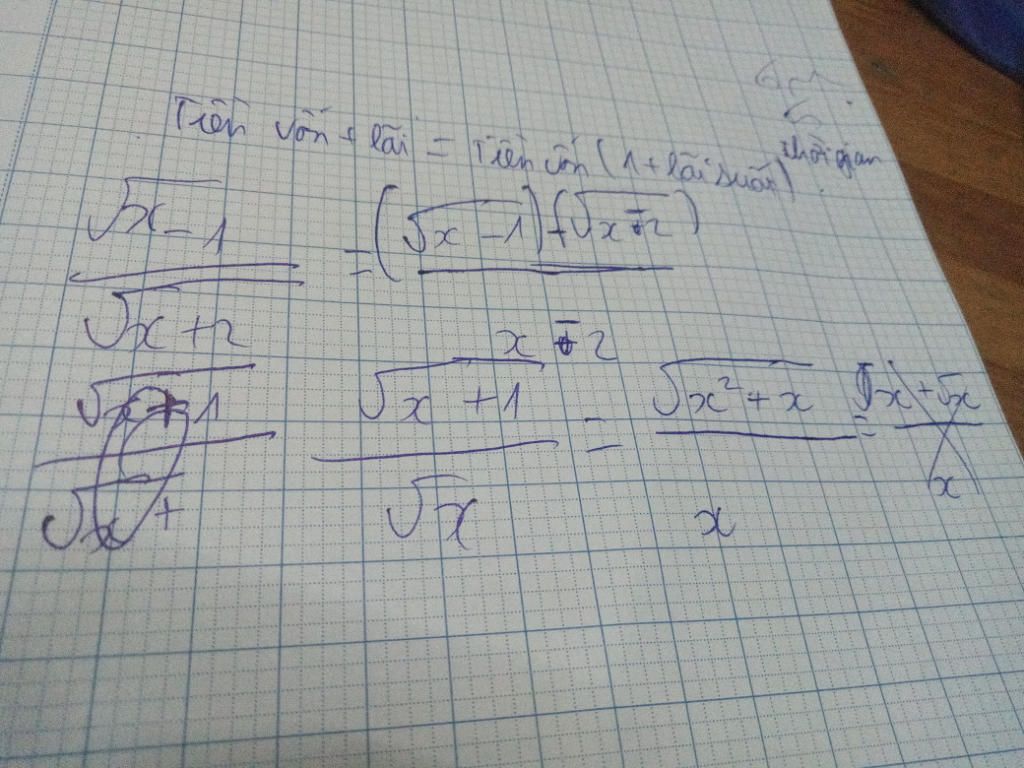 Tiền vốn + lãi = Tiền vốn (1 + lãi suất) thời gian
√x-1 / √x+2 = (√x-1)(√x-2) / x-2
√x+1 / √x+
√x+1 / √x = √x²+x / x = √x+√x / x